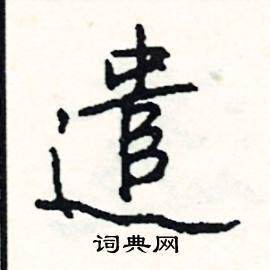 遣
词典网